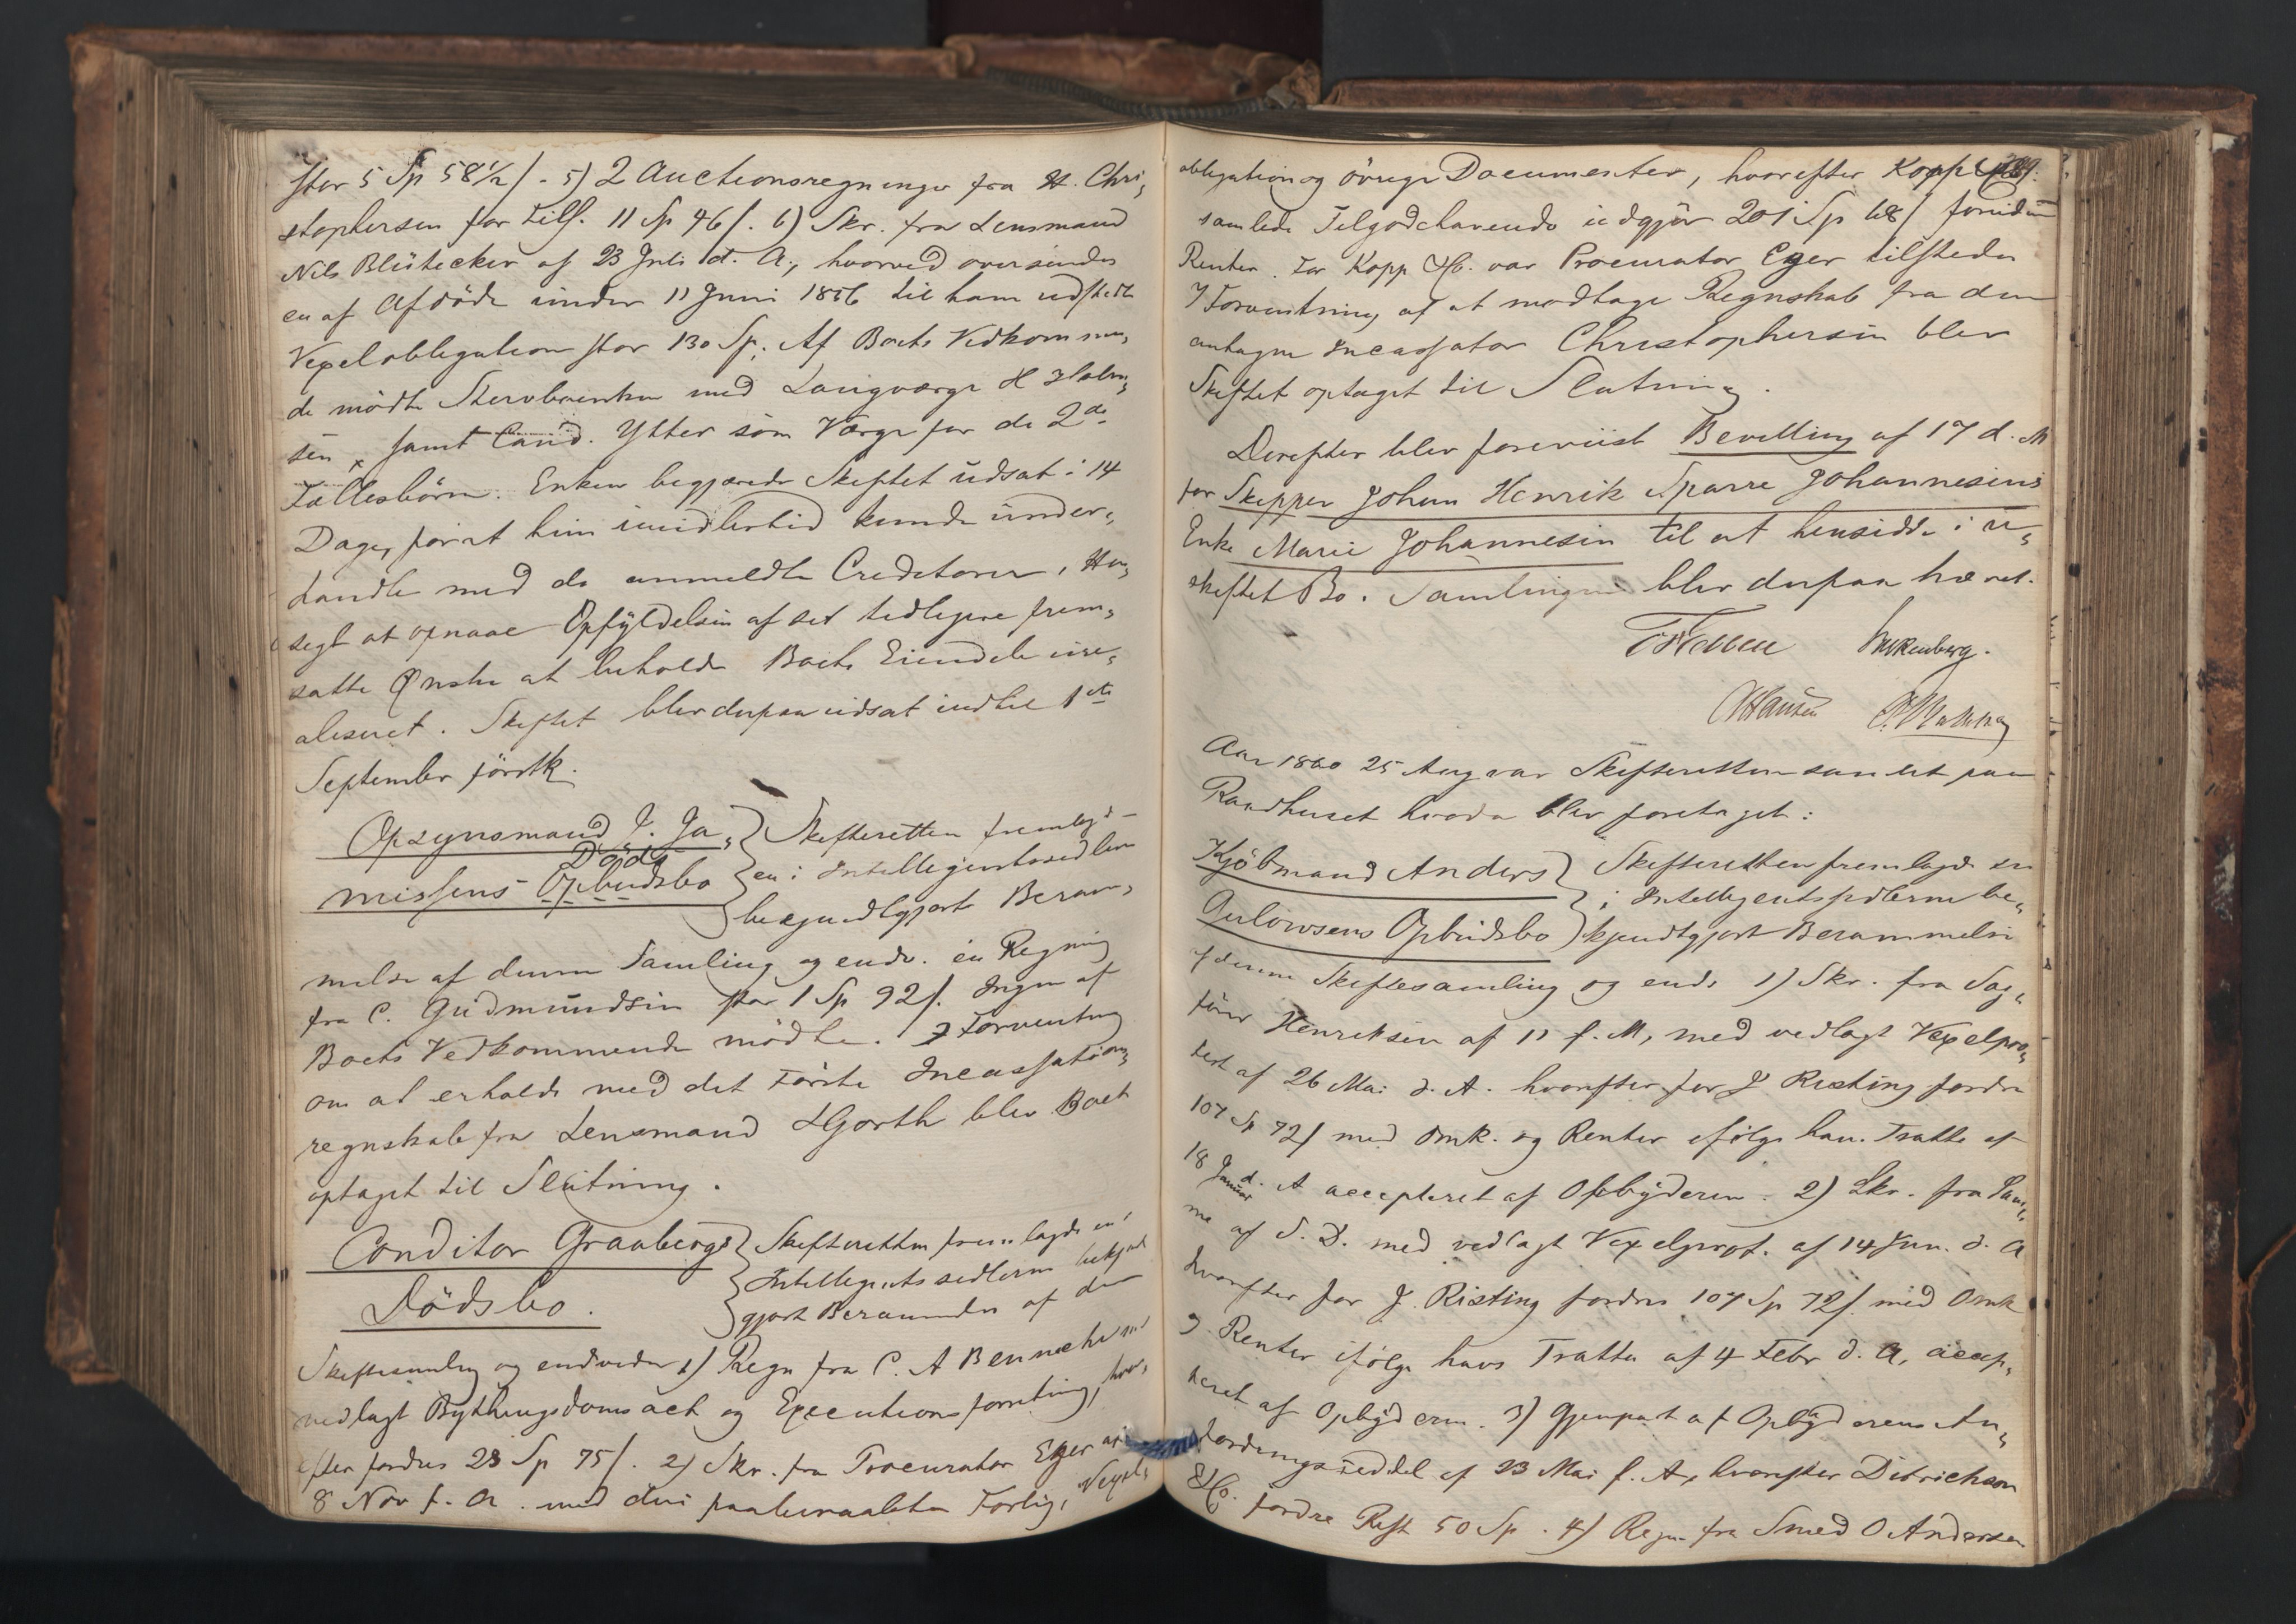 stor 5 Sp 58½ ſ - 5) 2 Auctionsregninger fra H. Chri„
stophersen for tils. 11 Sp 46 ſ. 6) Skr. fra Lensmand
Nils Blütecker af 23 Juli d. A., hvorved oversendes
en af Afdöde under 11 Juni 1856 til ham udstedte
Vexelobligation stor 130 Sp. Af Boets Vedkommen„
de mödte Stervboenken med Laugværge H
sen, samt Cand. Ytter som Værge for de 2de
Fællesbörn. Enken begjærede Skiftet udsat i 14
Dage, for at hun imidlertid kunde under„
handle med de anmeldte Creditorer, Hen„
sigt at opnaae Opfyldelsen af sit tidligere frem„
satte Ønske at beholde Boets Eiendele ure„
aliseret. Skiftet blev derpaa udsat indtil 1ste
September förstk.
Opsynsmand J. Ja„
missens Opbudsbo
Döds
Skifteretten fremlagde
en i Intelligentssedlerne
bekjendtgjort Beram„
melse af denne Samling og endv. en Regning
fra C. Gudmundsen stor 1 Sp 92 ſ. Ingen af
Boets Vedkommende mödte. I Forventning
om at erholde med det Förste Incassations„
regnskab fra Lensmand Hjorth blev Boet
optaget til Slutning.
Conditor Graabergs
Dödsbo.
Skifteretten fremlagde en i
Intelligentssedlerne bekjendt
gjort Berammelse af denne
Skiftesamling og endvidere 1) Regn fra C. A Benneche med
vedlagt Bythingsdomsact og Executionsforretning, hvor„
efter fordres 28 Sp 75 ſ. 2) Skr. fra Procurator Eger af
8 Nov f. A. med deri paaberaabte Forlig, Vexel„
obligation og övrige Documenter, hvorefter Kopp & Co.
samlede Tilgodehavende udgjör 201 Sp 68 ſ foruden
Renter. For Kopp & Co. var Procurator Eger tilstede
I Forventning af at modtage Regnskab fra den
antagne Incassator Christophersen blev
Skiftet optaget til Slutning.
Derefter blev foreviist Bevilling af 17 d. M
for Skipper Johan Henrik Sparre Johannesens
Enke Marie Johannesen til at hensidde i u„
skiftet Bo. Samlingen blev derpaa hævet.
Aar 1860 25 Aug var Skifteretten samlet paa
Raadhuset hvorda blev foretaget:
Kjöbmand Anders
Aulowsens Opbudsbo
Skifteretten fremlagde en
i Intelligentssedlerne be„
kjendtgjort Berammelse
af denne Skiftesamling og endv 1) Skr. fra Sag„
förer Henriksen af 11 f. M, med vedlagt Vexelpro„
test af 26 Mai d. A. hvorefter for J Risting fordres
107 Sp 72 ſ med Omk. og Renter ifölge hans Tratte af
18 Januar d. A accepteret af Opbyderen. 2) Skr. fra Sam„
me af S. D. med vedlagt Vexelprot. af 14 Jun. d. A
hvorefter for J. Risting fordres 107 Sp 72 ſ. med Omk
og Renter ifölge hans Tratte af 4 Febr d. A, accep„
teret af Opbyderen. 3) Gjenpart af Opbyderens An„
fordringsseddel af 23 Mai f. A, hvorefter Ditrichson
& Co. fordre Rest 50 Sp. 4) Regn fra Smed O Andersen